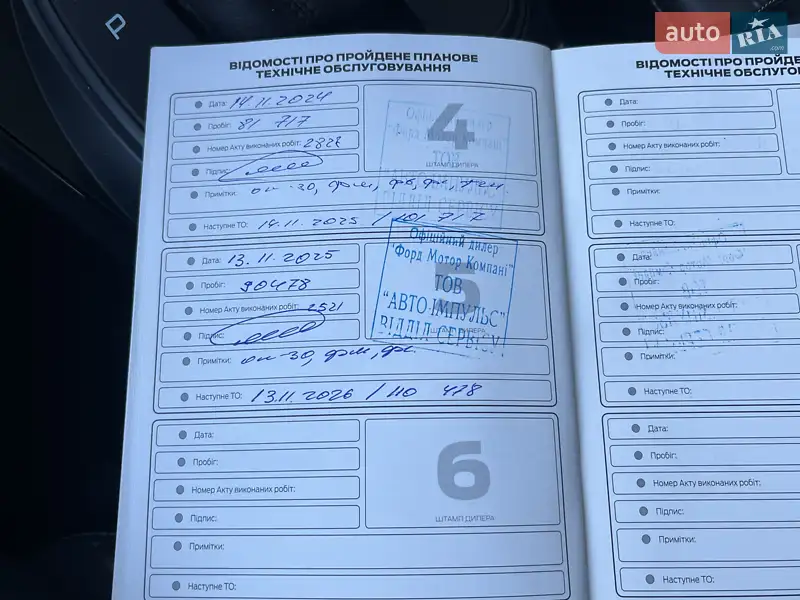 P
auto RIA .com
ВІДОМОСТІ ПРО ПРОЙДЕНЕ ПЛАНОВЕ
ТЕХНІЧНЕ ОБСЛУГОВУВАННЯ
Дата: 14.11.2024
Пробіг: 81 717
Номер Акту виконаних робіт: 2828
Підпис:
4
ШТАМП ДИЛЕРА
Офіційний дилер
"Форд Мотор Компані"
ТОВ
"АВТО-ІМПУЛЬС"
ВІДДІЛ СЕРВІСУ
Примітки: ол-30, фм, фб, фс,
Наступне ТО: 14.11.2025 / 101 717
Дата: 13.11.2025
Пробіг: 90478
Номер Акту виконаних робіт: 2521
Підпис:
5
ШТАМП ДИЛЕРА
Офіційний дилер
"Форд Мотор Компані"
ТОВ
"АВТО-ІМПУЛЬС"
ВІДДІЛ СЕРВІСУ
Примітки: ол-30, фм, фс.
Наступне ТО: 13.11.2026 / 110 478
Дата:
Пробіг:
Номер Акту виконаних робіт:
Підпис:
6
ШТАМП ДИЛЕРА
Примітки:
Наступне ТО:
ВІДОМОСТІ ПРО ПРОЙДЕ
ТЕХНІЧНЕ ОБСЛУГО
Дата:
Пробіг:
Номер Акту виконаних робіт:
Підпис:
Примітки:
Наступне ТО:
Дата:
Пробіг:
Номер Акту виконаних робіт:
Підпис:
Примітки:
Наступне ТО:
Дата:
Пробіг:
Номер Акту виконаних робіт:
Підпис:
Примітки:
Наступне ТО: